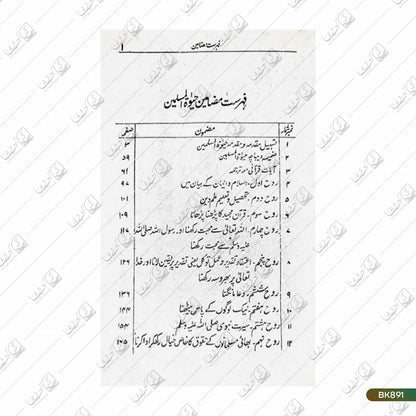 فہرست مضامین
۱
فہرست مضامین حیٰوۃ المسلمین
نمبرشمار مضمون صفحہ
۱ تسہیل مقدمہ و مقدمہ حیٰوۃ المسلمین ۳
۲ ضمیمہ دیباچہ حیٰوۃ المسلمین ۵۹
۳ آیات قرآنی مع ترجمہ ۶۱
۴ روح اول - اسلام و ایمان کے بیان میں ۹۷
۵ روح دوم - تحصیل و تعلیم علم دین ۱۰۱
۶ روح سوم - قرآن مجید کا پڑھنا پڑھانا ۱۰۹
۷ روح چہارم - اللہ تعالیٰ سے محبت رکھنا اور رسول اللہ صلی اللہ ۱۱۷
علیہ وسلم سے محبت رکھنا
۸ روح پنجم - اعتقاد تقدیر و عمل توکل یعنی تقدیر پر یقین لانا اور خدا ۱۲۶
تعالیٰ پر بھروسہ رکھنا
۹ روح ششم - دعا مانگنا ۱۳۶
۱۰ روح ہفتم - نیک لوگوں کے پاس بیٹھنا ۱۴۴
۱۱ روح ہشتم - سیرت نبوی صلی اللہ علیہ وسلم ۱۵۴
۱۲ روح نہم - بھائی مسلمانوں کے حقوق کا خاص خیال رکھکر ادا کرنا ۱۶۵
BK891